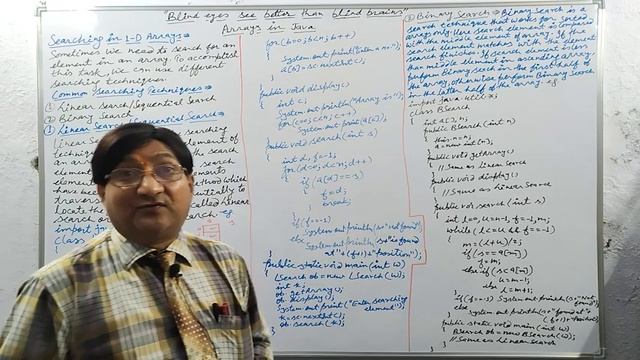 "Blind eyes see better than blind brains"
Arrays in Java
Searching in 1-D Arrays →
Sometimes we need to search for an
element in an array. To accomplish
this task, we can use different
searching techniques.
Common Searching Techniques →
① Linear search/Sequential Search
② Binary Search
① Linear Search/Sequential Search
Linear
searching
element of
an
the search
element
elements
element
method which
have
sequentially to
traverse
locate the
search or
search. eg
import
class
{
for(b=0;b<n;b++)
{
System.out.print("Enter a no.");
a[b]=sc.nextInt();
}
}
public void display()
{
int c;
System.out.println("Array is");
for(c=0;c<n;c++)
System.out.print(a[c]);
}
public void search(int s)
{
int d,f=-1;
for(d=0;d<n;d++)
{
if(a[d]==s)
{
f=d;
break;
}
}
if(f==-1)
System.out.println(s+"not found");
else
System.out.println(s+"is found
at"+(f+1)+"position");
}
public static void main(int w)
{
LSearch ob=new LSearch(w);
int x;
ob.getArray();
ob.display();
System.out.print("Enter searching
element");
x=sc.nextInt();
ob.search(x);
② Binary Search → Binary Search is a
search technique that works for sorted
arrays only. Here search element is compared
with the middle element of array. If the
search element matches with the element
search finishes. If search element is less
than middle element in ascending array
perform Binary Search in the first half of
the array, otherwise perform Binary Search
in the latter half of the array. eg
import java.util.*;
class BSearch
{
int a[],n;
public BSearch(int n)
{
this.n=n;
a=new int[n];
}
public void getArray()
//Same as Linear Search
public void display()
//Same as Linear Search
public void search(int s)
{
int l=0,u=n-1,f=-1,m;
while(l<=u && f==-1)
{
m=(l+u)/2;
if(s==a[m])
f=m;
else if(s<a[m])
u=m-1;
else l=m+1;
}
if(f==-1) System.out.println(s+"not
found");
else
System.out.println(s+"found at"+
(f+1)+"position");
}
public static void main(int w)
BSearch ob=new BSearch(w);
//Same as Linear Search